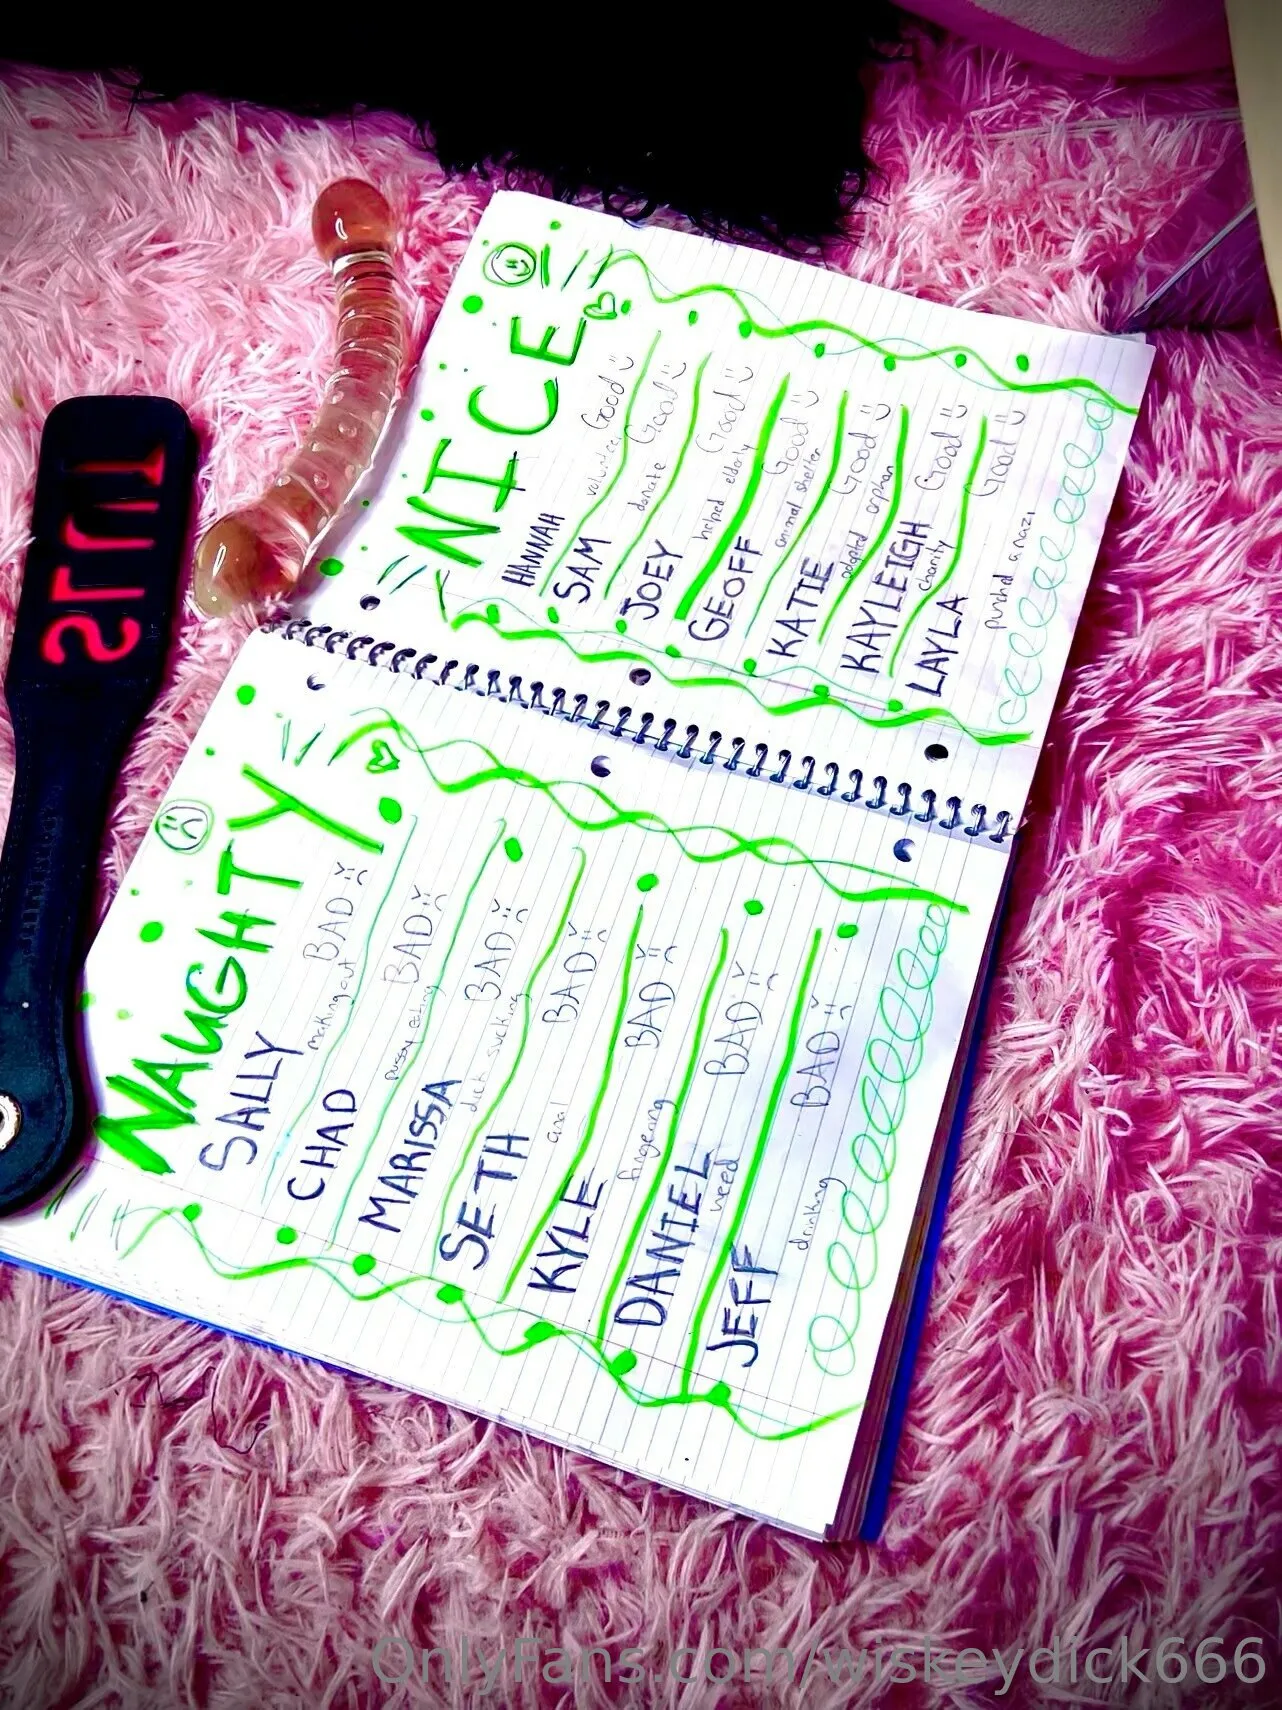 NAUGHTY
SALLY
making out BAD
CHAD
pussy eating BAD
MARISSA
dick sucking BAD
SETH
anal BAD
KYLE
fingering BAD
DANIEL
weed BAD
JEFF
drinking BAD
NICE
HANNAH
volunteer Good
SAM
donate Good
JOEY
helped elderly Good
GEOFF
animal shelter Good
KATIE
adopted orphan Good
KAYLEIGH
charity Good
LAYLA
punched a nazi Good
SLUT
OnlyFans.com/wiskeydick666